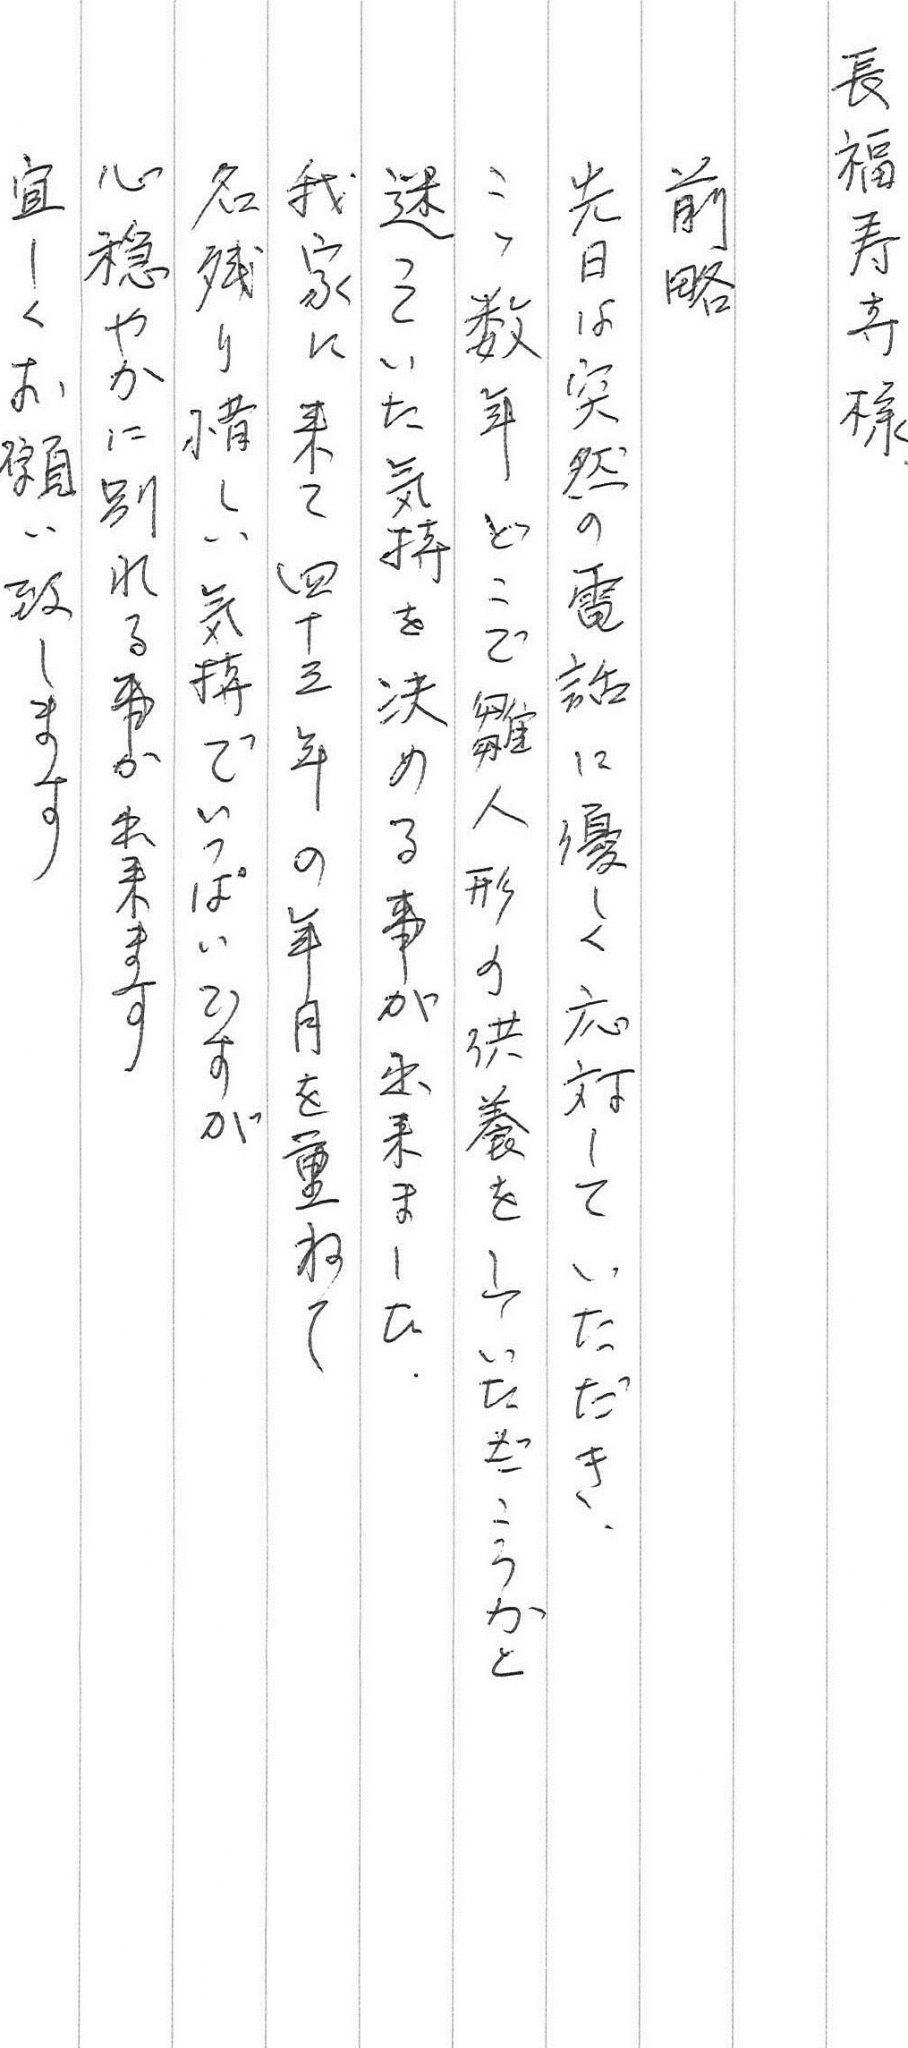 長福寿寺様
前略
先日は突然の電話に優しく応対していただき、
ここ数年どこで雛人形の供養をしていただこうかと
迷っていた気持を決める事が出来ました.
我家に来て四十三年の年月を重ねて
名残り惜しい気持でいっぱいですが
心穏やかに別れる事が出来ます
宜しくお願い致します